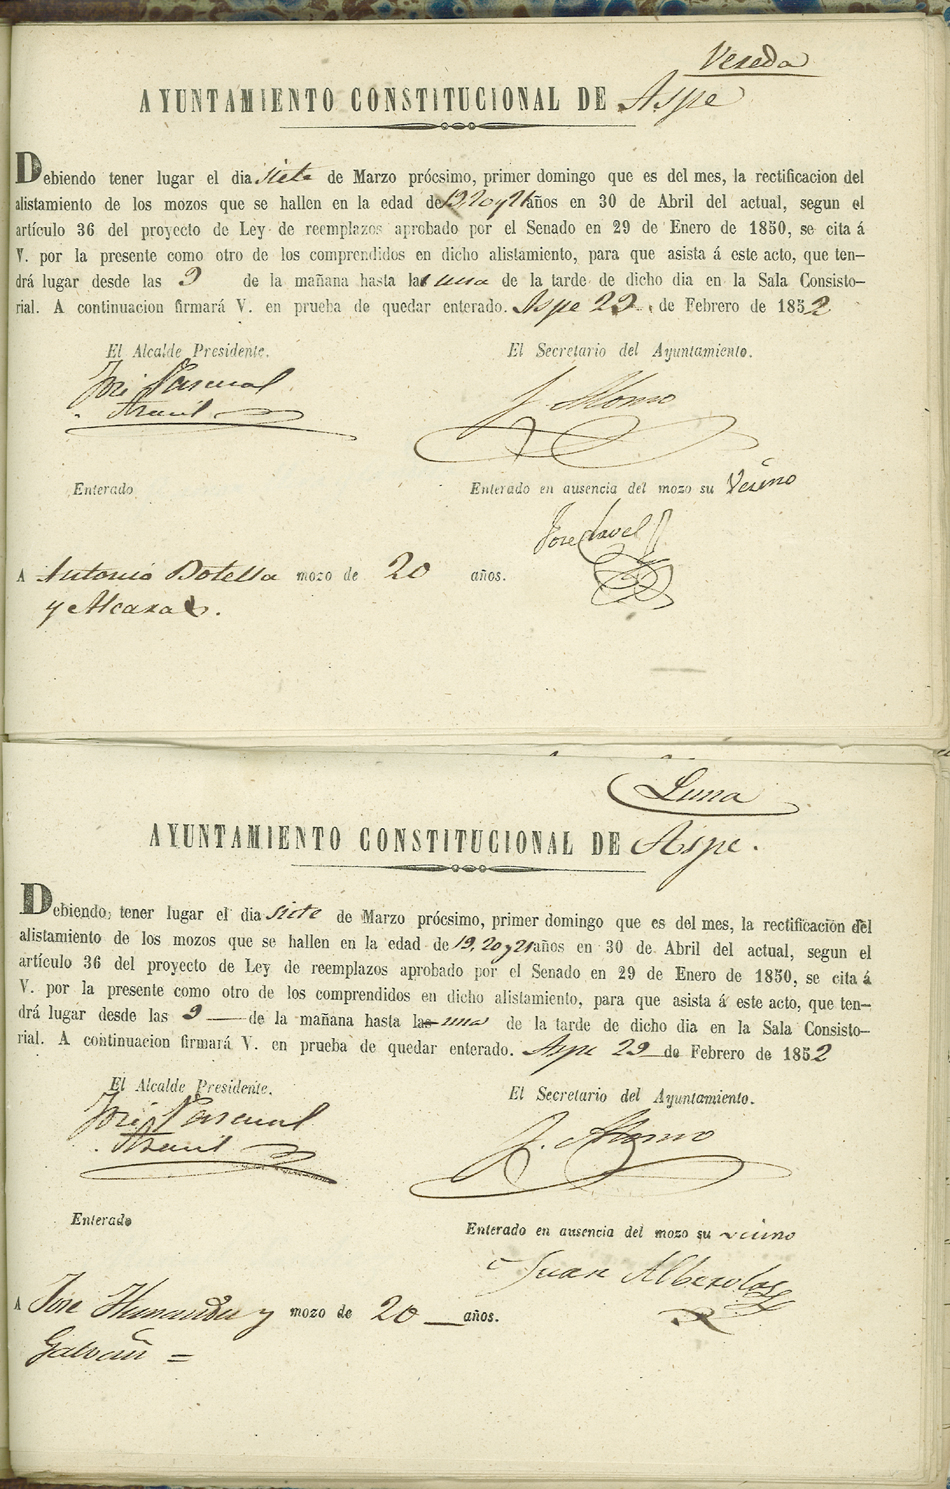 Vereda
AYUNTAMIENTO CONSTITUCIONAL DE Aspe
Debiendo tener lugar el dia siete de Marzo prócsimo, primer domingo que es del mes, la rectificacion del
alistamiento de los mozos que se hallen en la edad de 19, 20 y 21 años en 30 de Abril del actual, segun el
artículo 36 del proyecto de Ley de reemplazos aprobado por el Senado en 29 de Enero de 1850, se cita á
V. por la presente como otro de los comprendidos en dicho alistamiento, para que asista á este acto, que ten-
drá lugar desde las 9 de la mañana hasta la una de la tarde de dicho dia en la Sala Consisto-
rial. A continuacion firmará V. en prueba de quedar enterado. Aspe 29 de Febrero de 1852
El Alcalde Presidente. El Secretario del Ayuntamiento.
José Pascual J. Alonso
Enterado Enterado en ausencia del mozo su Vecino
Jose Clavel
A Antonio Botella mozo de 20 años.
y Alcaraz.
Luna
AYUNTAMIENTO CONSTITUCIONAL DE Aspe.
Debiendo tener lugar el dia siete de Marzo prócsimo, primer domingo que es del mes, la rectificacion del
alistamiento de los mozos que se hallen en la edad de 19, 20 y 21 años en 30 de Abril del actual, segun el
artículo 36 del proyecto de Ley de reemplazos aprobado por el Senado en 29 de Enero de 1850, se cita á
V. por la presente como otro de los comprendidos en dicho alistamiento, para que asista á este acto, que ten-
drá lugar desde las 9 de la mañana hasta la una de la tarde de dicho dia en la Sala Consisto-
rial. A continuacion firmará V. en prueba de quedar enterado. Aspe 29 de Febrero de 1852
El Alcalde Presidente. El Secretario del Ayuntamiento.
José Pascual J. Alonso
Enterado Enterado en ausencia del mozo su vecino
Juan Alberola
A Jose Hernandez y mozo de 20 años.
Galvañ =